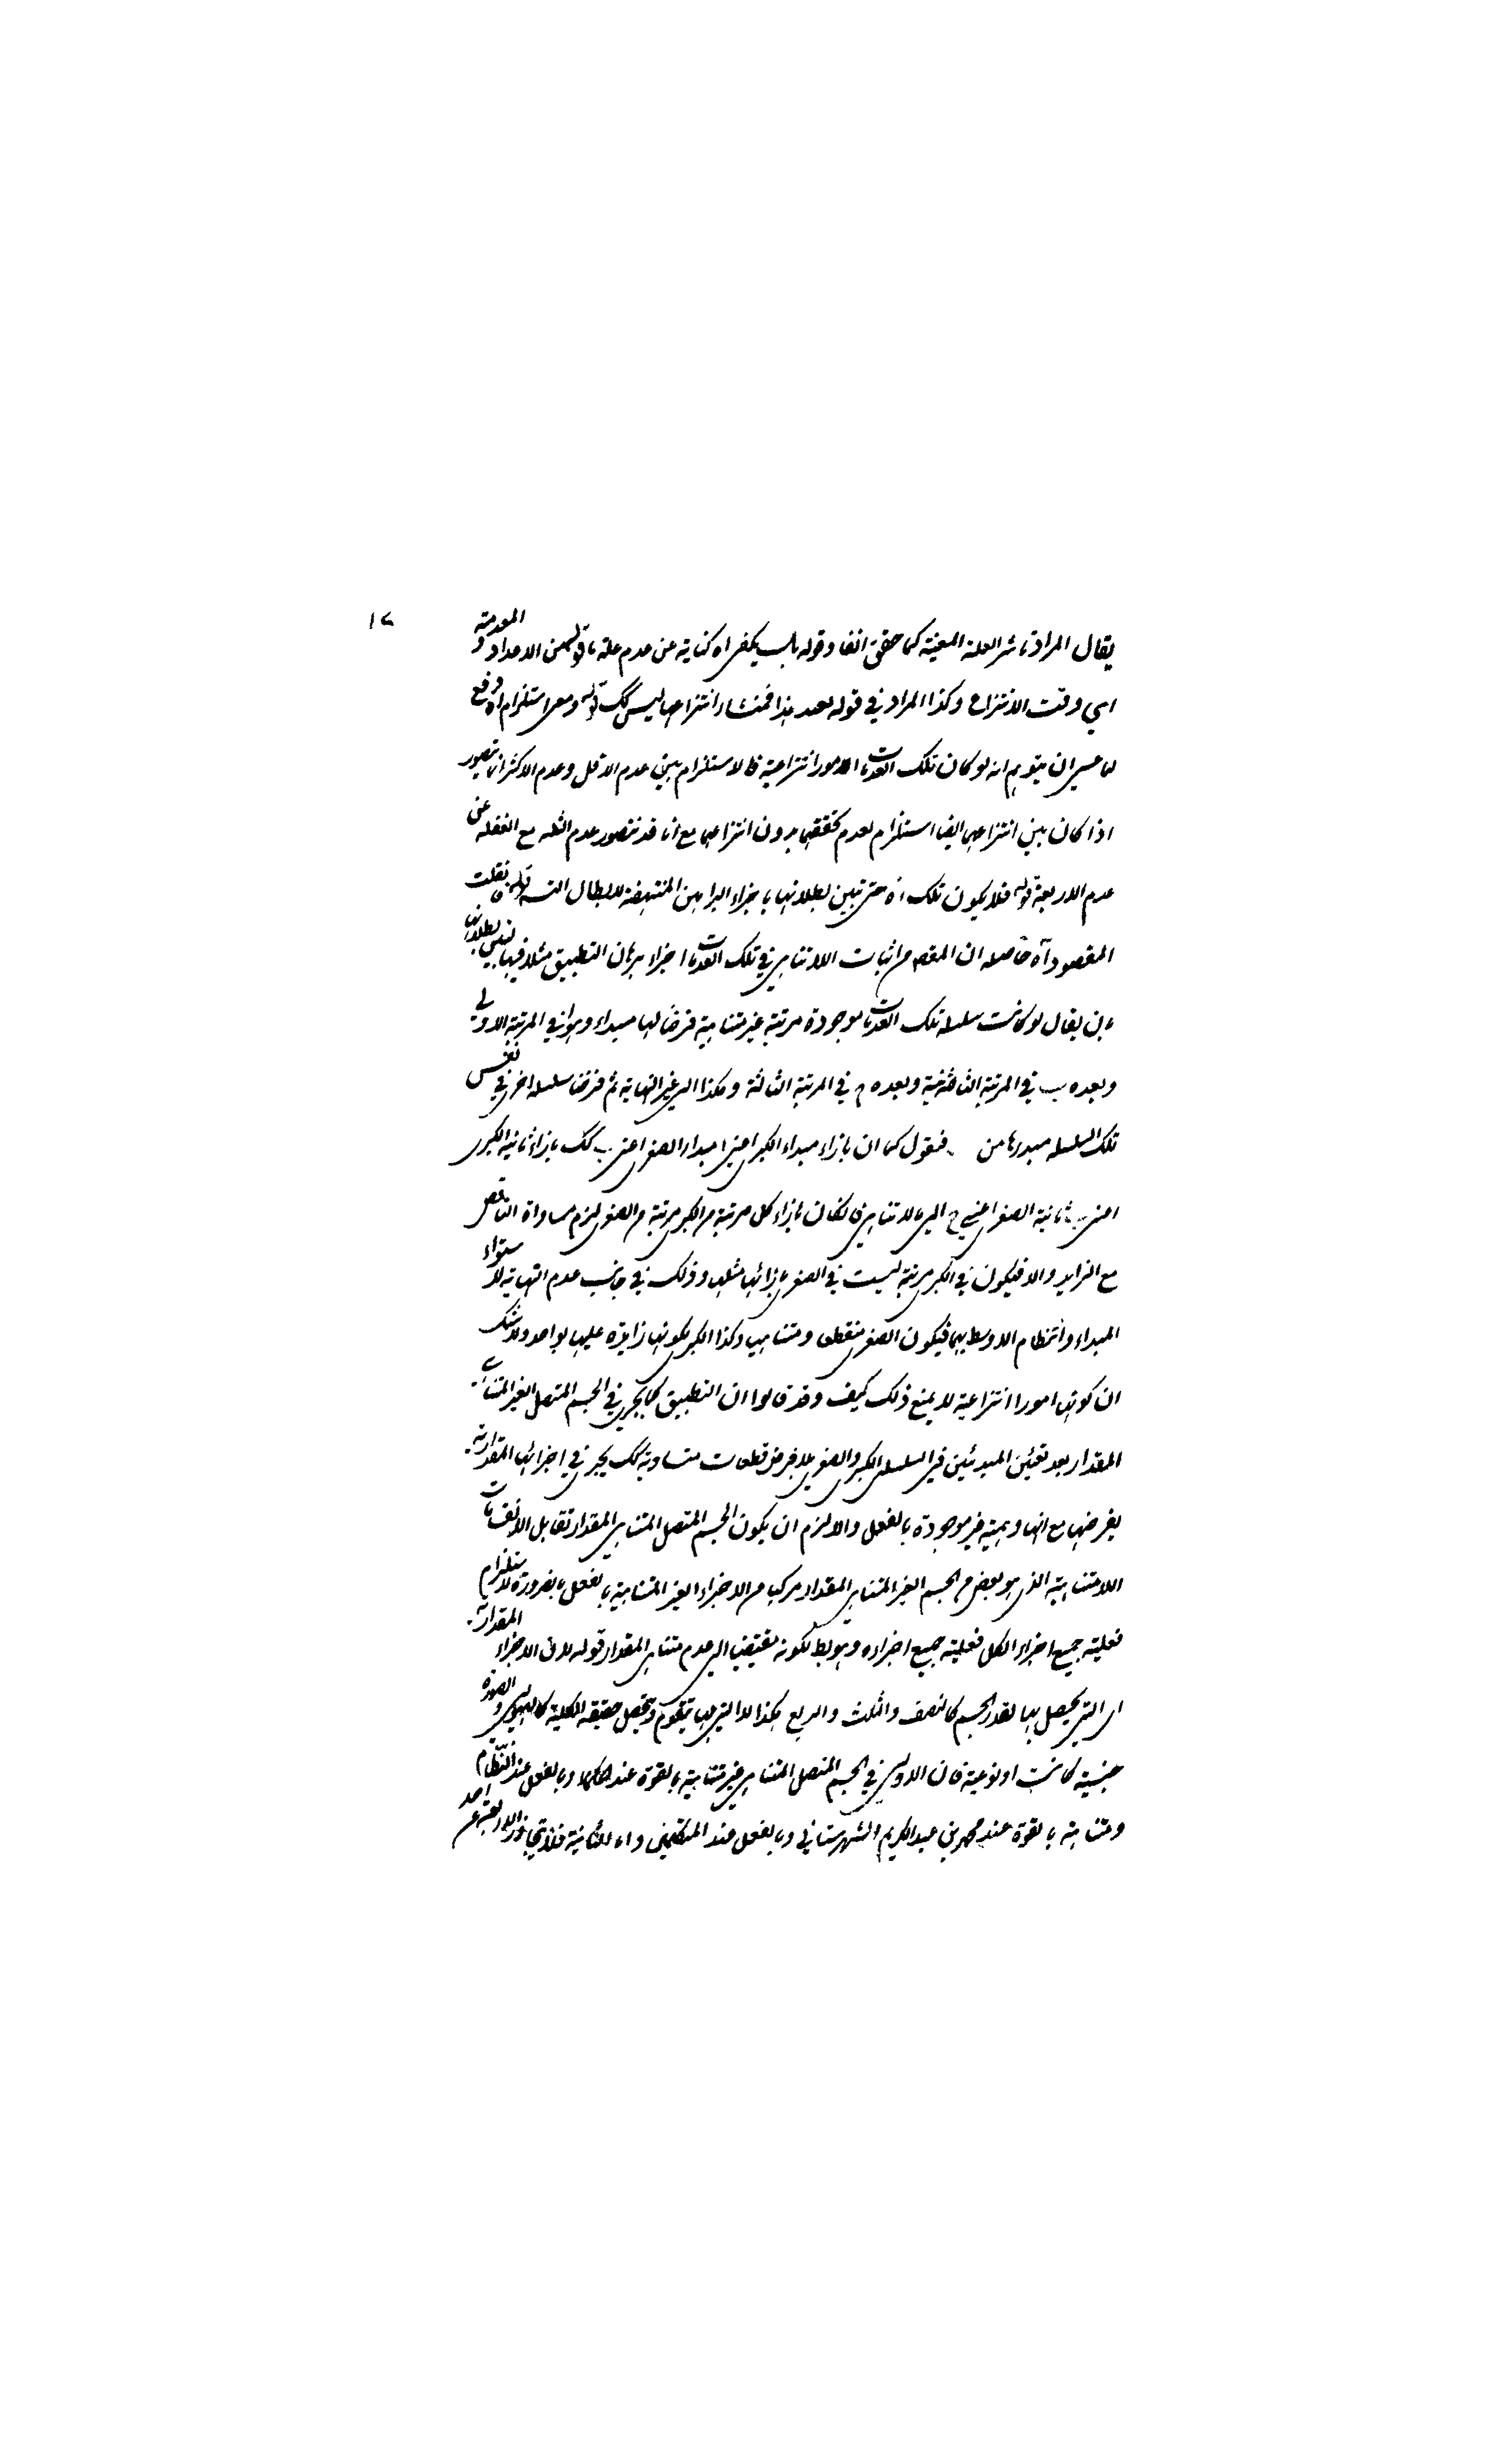 ١٧
يقال المراد تاثير العلة المعينة كما حقق انفا وقوله بل يكفى اه كناية عن عدم علة ما قوله من الاعداد المعدومة
اى وقت الانتزاع وكذا المراد فى قوله بعد هذا فمنشاء انتزاعها ليس كك قوله ومعى استلزام اه دفع
لما عسى ان يتوهم انه لو كان تلك العدمات امورا انتزاعية فالاستلزام بين عدم الاقل وعدم الاكثر انما يتصور
اذا كان بين انتزاعها ايضا استلزام لعدم تحققها بدون انتزاعها مع انا قد نتصور عدم الثلثه مع الغفلة عن
عدم الاربعة قوله فلا يكون تلك اه حتى تبين بطلانها باجراء البراهين المنتهضة لابطال التسه قوله فان قلت
المقصود آه حاصله ان المقصه من اثبات اللاتناهى فى تلك العدمات اجراء برهان التطبيق مثلا فيها ليتبين بطلانها
بان يقال لو كانت سلسلة تلك العدمات موجودة مرتبة غير متناهية فرضنا لها مبداء وهو ا فى المرتبة الاولى
وبعده ب فى المرتبة الثانية وبعده ج فى المرتبة الثالثة وهكذا الى غير النهاية ثم فرضنا سلسلة اخرى فى نفس
تلك السلسلة مبدءها من ب فنقول كما ان بازاء مبداء الكبرى اعنى ا مبداء الصغرى اعنى ب كك بازاء ثانية الكبرى
اعنى ب ثانية الصغرى اعنى ج الى مالا تتناهى فان كان بازاء كل مرتبة من الكبرى مرتبة من الصغرى لزم مساواة الناقص
مع الزايد والا فيكون فى الكبرى مرتبة ليست فى الصغرى بازائها مثلها وذلك فى جانب عدم النهاية لاستواء
المبداء وانتظام الاوسط بهما فيكون الصغرى منقطعا ومتناهيا وكذا الكبرى لكونها زايدة عليها بواحد ولا شك
ان كونها امورا انتزاعية لا يمنع ذلك كيف وقد قالوا ان التطبيق كما يجرى فى الجسم المتصل الغير المتناهى
المقدار بعد تعيين المبدئين فى السلسلة الكبرى والصغرى بلا فرض قطعات متساوية كك يجرى فى اجزائها المقدارية
بفرضها مع انها وهمية غير موجودة بالفعل والا لزم ان يكون الجسم المتصل المتناهى المقدار تقابل الانقسامات
اللامتناهية الذى هو بعض من الجسم الغير المتناهى المقدار مركبا من الاجزاء الغير المتناهية بالفعل بالضرورة لاستلزام
فعلية جميع اجزاء الكل فعلية جميع اجزاءه وهو بط لكونه مقتضيا الى عدم تناهى المقدار قوله لان الاجزاء المقدارية
اى التى يحصل بها تقدر الجسم كالنصف والثلث والربع هكذا لا التى بها يتقوم ويتحصل حقيقة الكلية كالهيولى والصورة
جنسية كانت او نوعية فان الاولى فى الجسم المتصل المتناهى غير متناهية بالقوة عند الحكماء وبالفعل عند النظام
ومتناهية بالقوة عند محمد بن عبد الكريم الشهرستانى وبالفعل عند المتكلمين واما الثانية فلا تتجاوز الاربعة عن احد